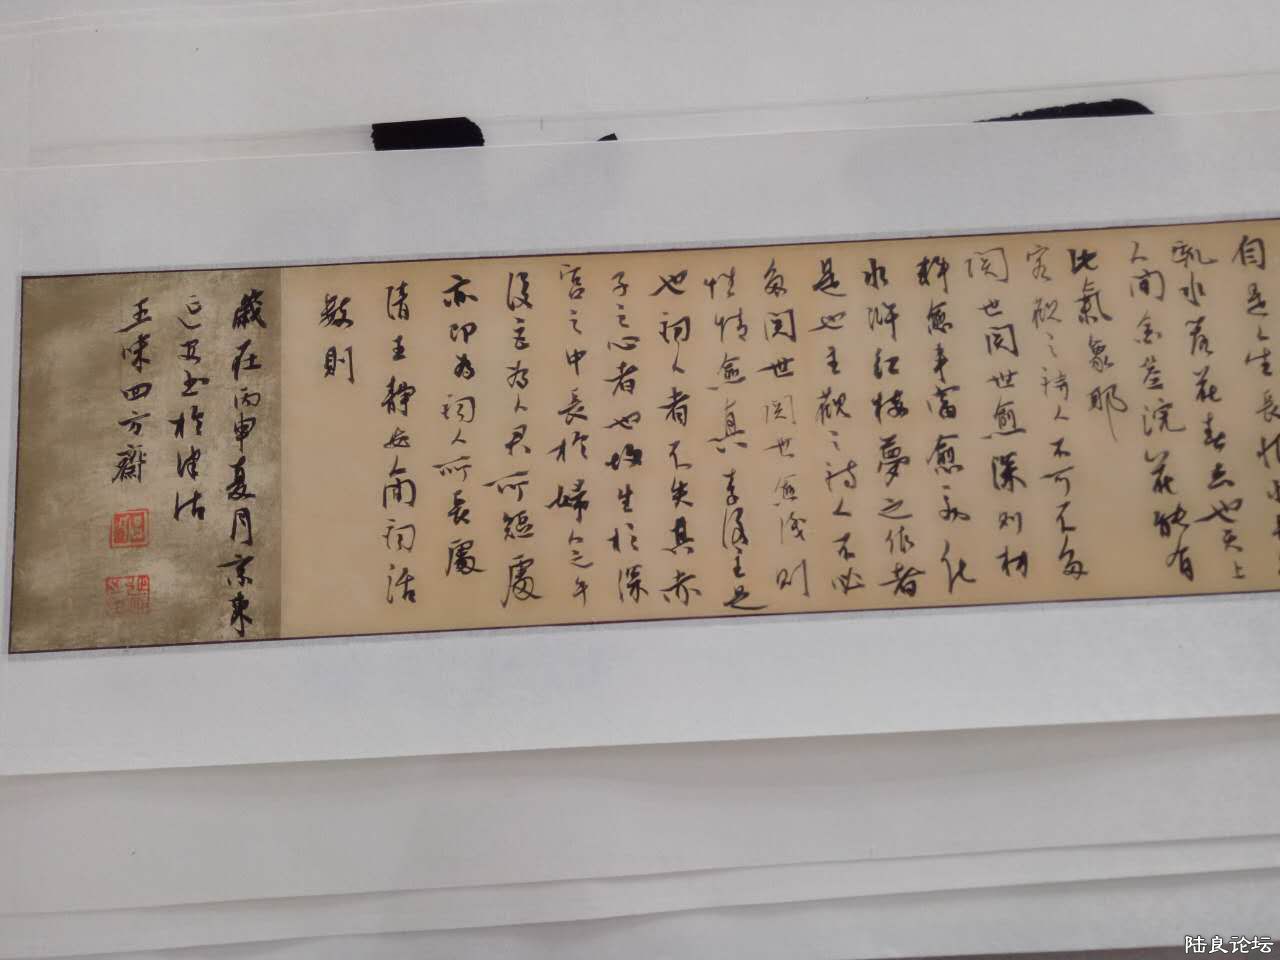 自是人生長恨水
流水落花春去也天上
人間金荃浣花能有
此氣象耶
客觀之詩人不可不多
閱世閱世愈深則材
料愈丰富愈變化
水滸紅樓夢之作者
是也主觀之詩人不必
多閱世閱世愈淺則
性情愈真李後主是
也詞人者不失其赤
子之心者也故生於深
宮之中長於婦人之手
後主為人君所短處
亦即為詞人所長處
清王靜安人間詞話
數則
歲在丙申夏月京東
書於津沽
味四方齋
陆良论坛